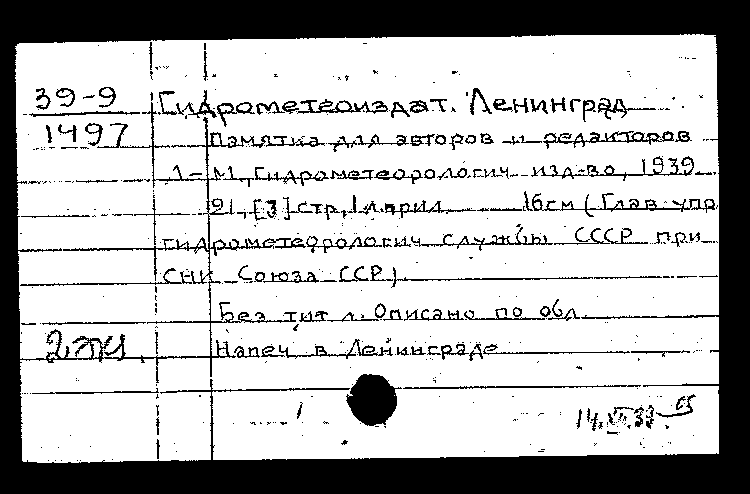 39-9 Гидрометеоиздат. Ленинград
1497 Памятка для авторов и редакторов
Л-М, Гидрометеорологич изд-во, 1939
91, [3] стр, 1 л прил 16см (Глав упр
гидрометеорологич службы СССР при
СНК Союза ССР).
Без тит л. Описано по обл
2 Напеч в Ленинграде
1
14. 39